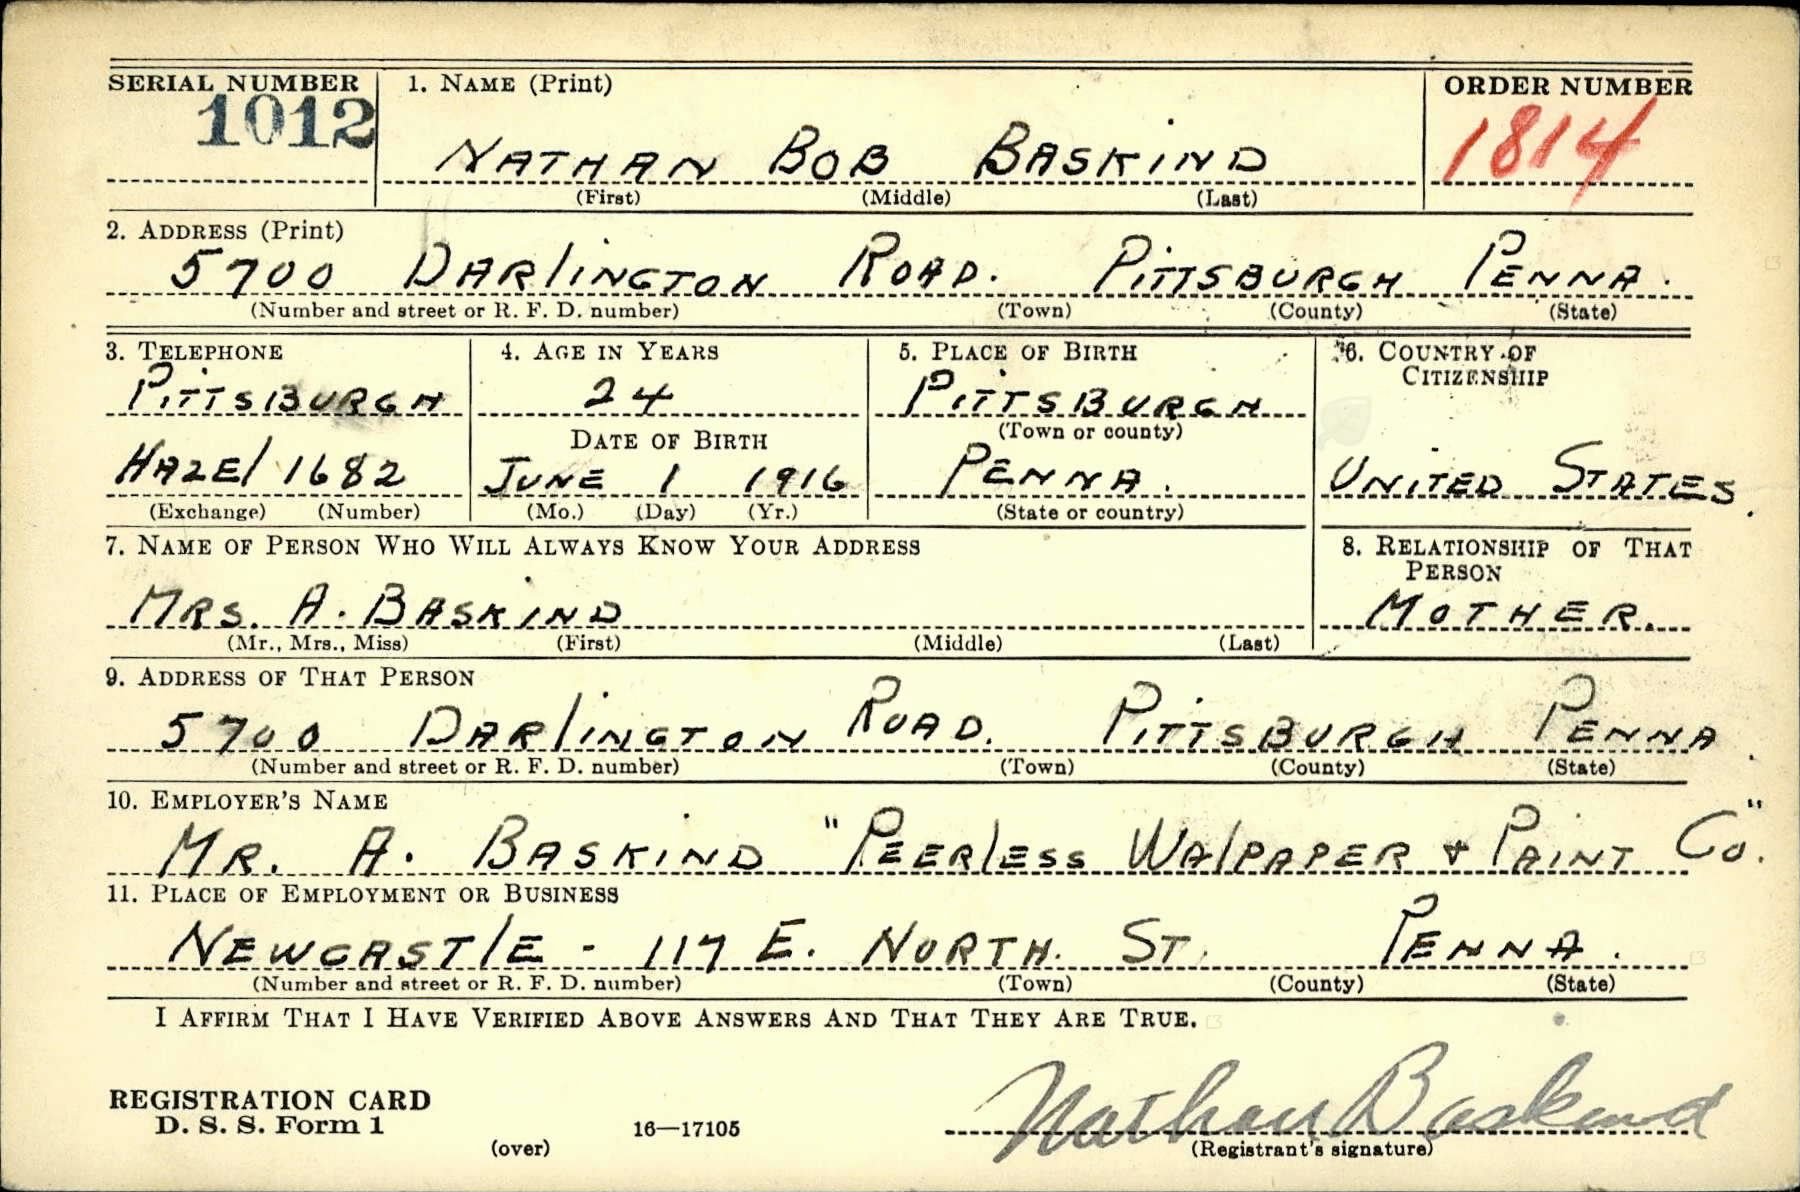 SERIAL NUMBER 1. NAME (Print) ORDER NUMBER
1012 NATHAN BOB BASKIND 1814
(First) (Middle) (Last)
2. ADDRESS (Print)
5700 DARLINGTON ROAD. PITTSBURGH PENNA.
(Number and street or R. F. D. number) (Town) (County) (State)
3. TELEPHONE 4. AGE IN YEARS 5. PLACE OF BIRTH 6. COUNTRY OF
CITIZENSHIP
PITTSBURGH 24 PITTSBURGH
DATE OF BIRTH (Town or county)
HAZEL 1682 JUNE 1 1916 PENNA. UNITED STATES.
(Exchange) (Number) (Mo.) (Day) (Yr.) (State or country)
7. NAME OF PERSON WHO WILL ALWAYS KNOW YOUR ADDRESS 8. RELATIONSHIP OF THAT
PERSON
MRS. A. BASKIND MOTHER.
(Mr., Mrs., Miss) (First) (Middle) (Last)
9. ADDRESS OF THAT PERSON
5700 DARLINGTON ROAD. PITTSBURGH PENNA.
(Number and street or R. F. D. number) (Town) (County) (State)
10. EMPLOYER'S NAME
MR. A. BASKIND "PEERLESS WALPAPER & PAINT CO."
11. PLACE OF EMPLOYMENT OR BUSINESS
NEWCASTLE - 117 E. NORTH. ST. PENNA.
(Number and street or R. F. D. number) (Town) (County) (State)
I AFFIRM THAT I HAVE VERIFIED ABOVE ANSWERS AND THAT THEY ARE TRUE.
REGISTRATION CARD
D. S. S. Form 1
(over) 16—17105 Nathan Baskind
(Registrant's signature)